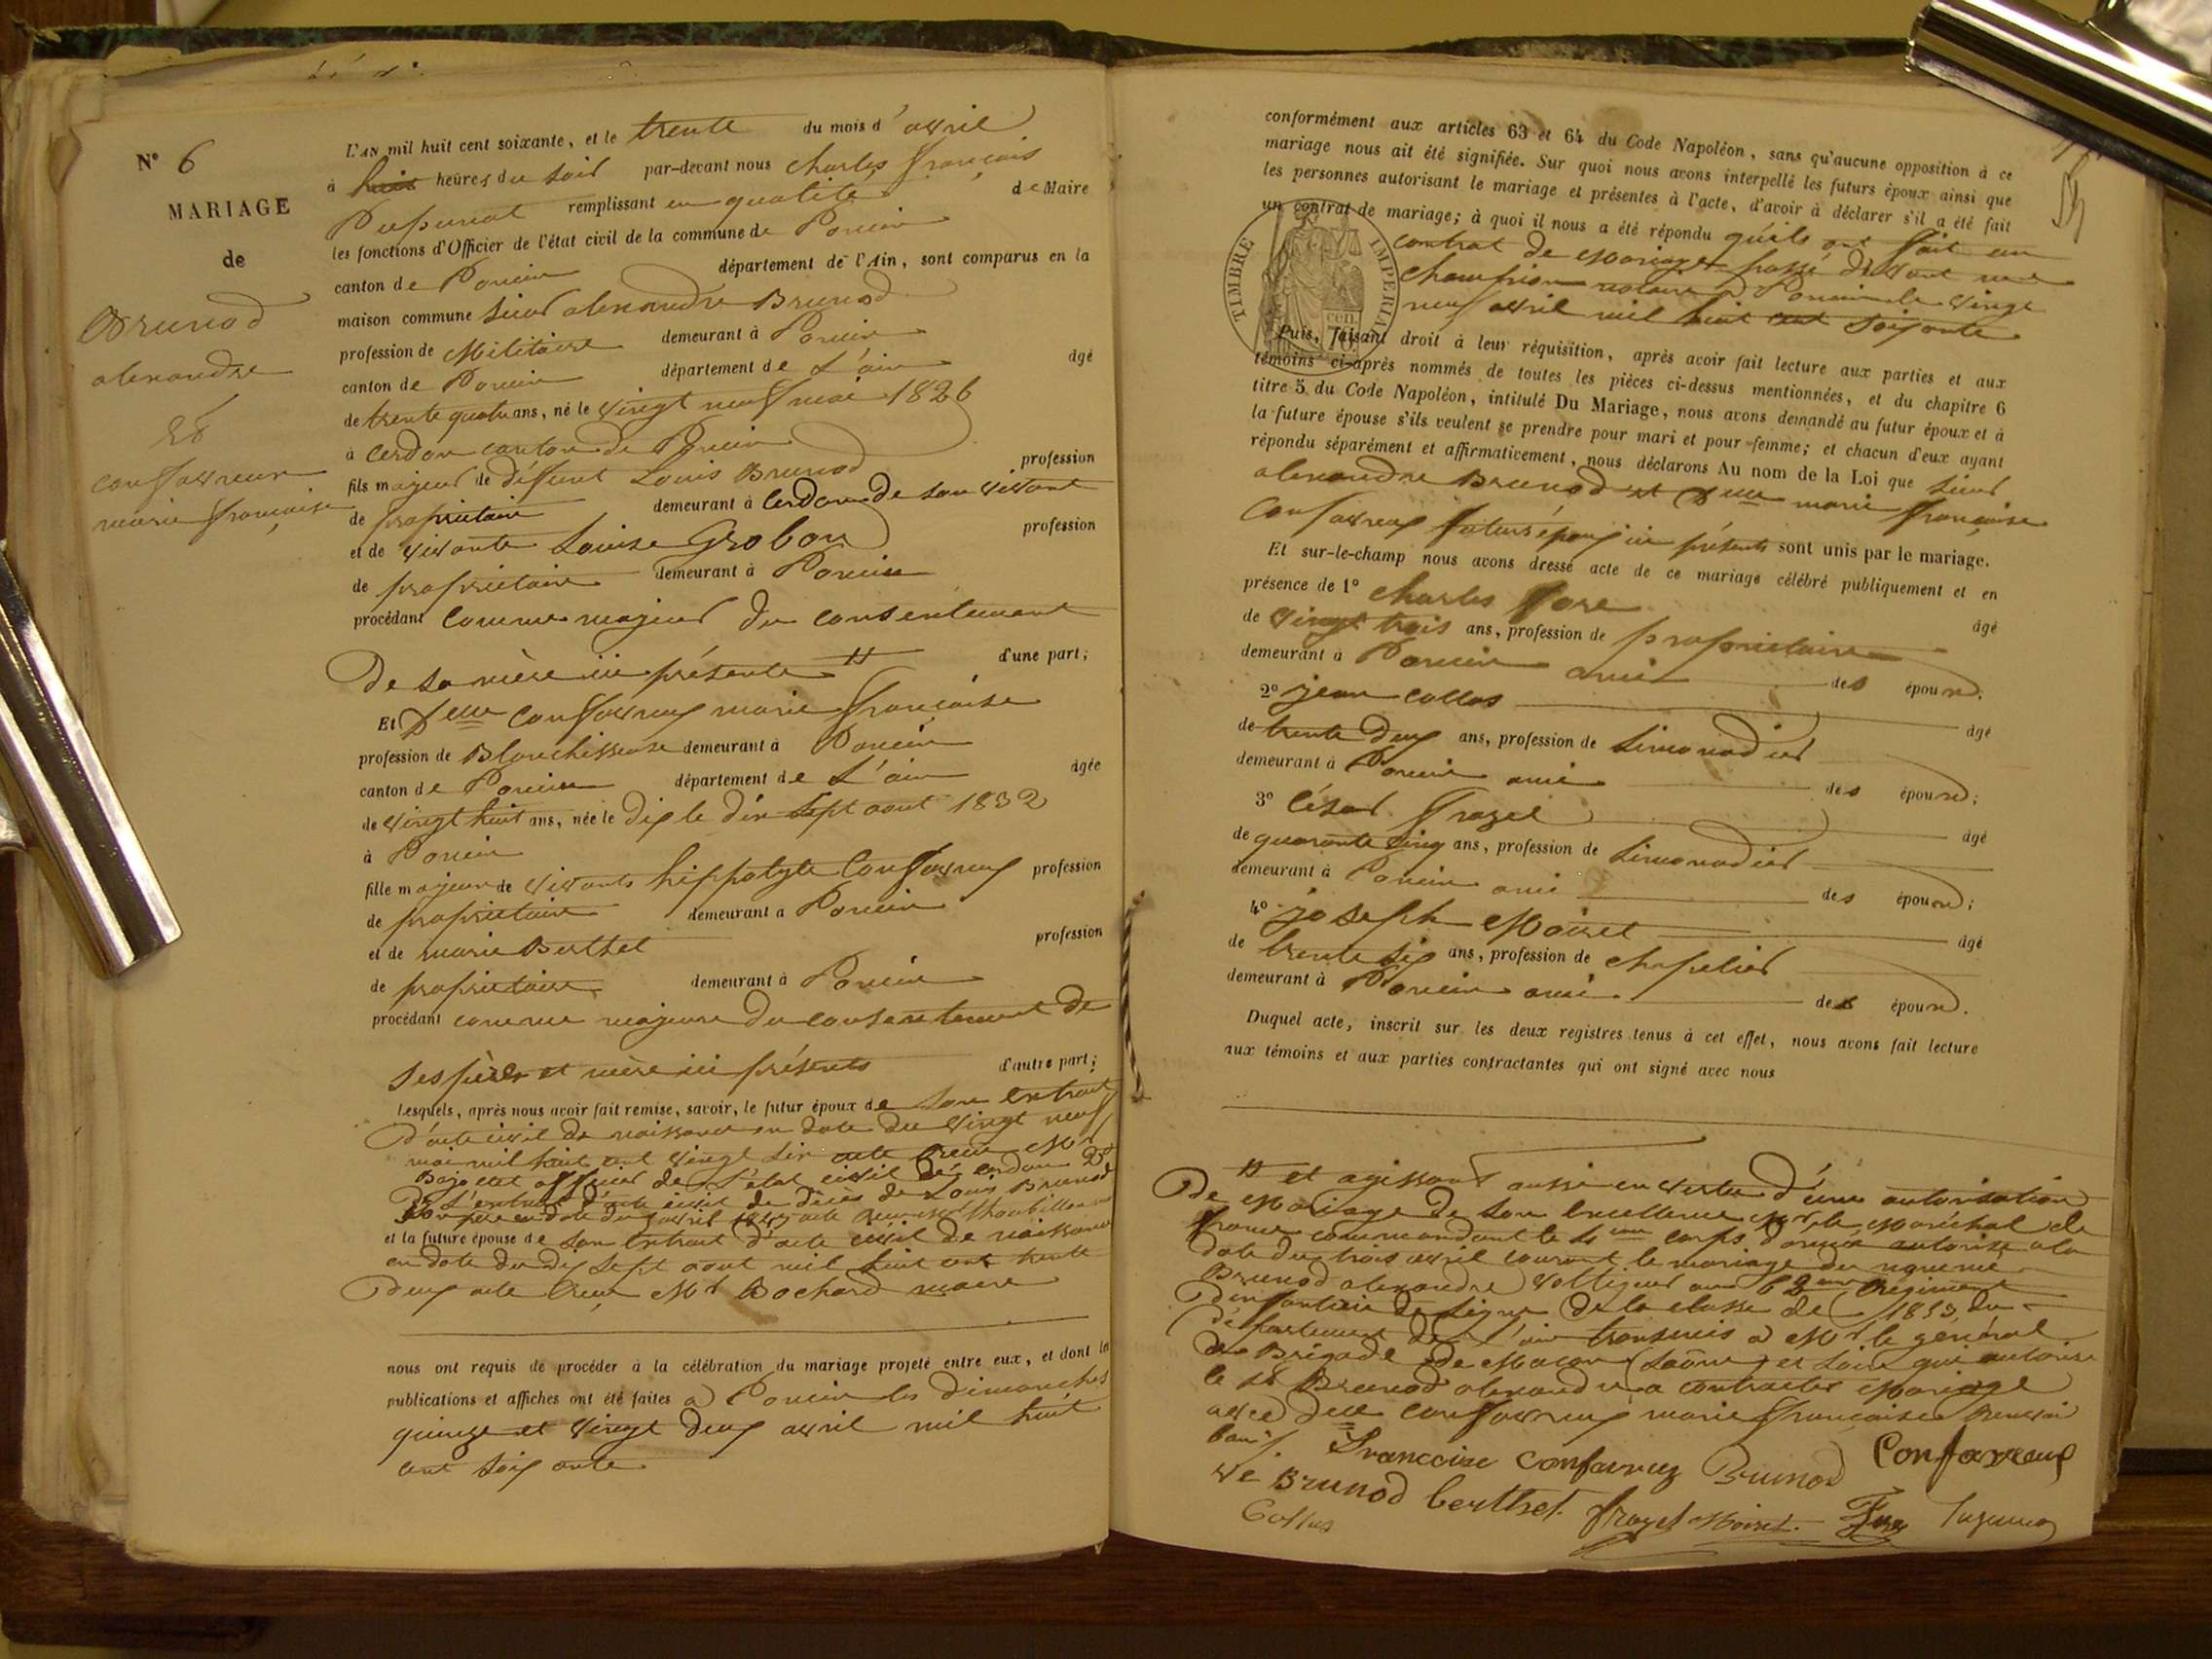 N° 6
MARIAGE
de
Brunod
alexandre
et
confavreux
marie françoise
L'AN mil huit cent soixante, et le trente du mois d'avril
à huit heures du soir par-devant nous charles françois
remplissant en qualité de Maire
les fonctions d'Officier de l'état civil de la commune de Poncin
canton de Poncin département de l'Ain, sont comparus en la
maison commune sieur alexandre Brunod
profession de Militaire demeurant à Poncin
canton de Poncin département de L'ain âgé
de trente quatre ans, né le vingt neuf mai 1826
à Cerdon canton de Poncin
fils majeur de défunt Louis Brunod profession
de propriétaire demeurant à Cerdon de son vivant
et de vivante Louise Grobon profession
de propriétaire demeurant à Poncin
procédant comme majeur du consentement
De sa mère ici présente # d'une part;
Et Delle confavreux marie françoise
profession de Blanchisseuse demeurant à Poncin
canton de Poncin département de L'ain âgée
de vingt huit ans, née le dix le dix sept aout 1832
à Poncin
fille majeure de vivants hippolyte Confavreux profession
de propriétaire demeurant à Poncin
et de marie Berthet profession
de propriétaire demeurant à Poncin
procédant comme majeure du consentement de
ses père et mère ici présents d'autre part;
Lesquels, après nous avoir fait remise, savoir, le futur époux de son extrait
d'acte civil de naissance en date du vingt neuf
mai mil huit cent vingt six acte Mr
officier de l'état civil de cerdon 2°
De L'extrait d'acte civil de décès de Louis Brunod
son père en date du avril acte
et la future épouse de son extrait d'acte civil de naissance
en date du dix sept aout mil huit cent trente
Deux acte Mr Bochard maire
nous ont requis de procéder à la célébration du mariage projeté entre eux, et dont les
publications et affiches ont été faites à Poncin les dimanches
quinze et vingt deux avril mil huit
cent soixante
conformément aux articles 63 et 64 du Code Napoléon, sans qu'aucune opposition à ce
mariage nous ait été signifiée. Sur quoi nous avons interpellé les futurs époux ainsi que
les personnes autorisant le mariage et présentes à l'acte, d'avoir à déclarer s'il a été fait
un contrat de mariage; à quoi il nous a été répondu qu'ils ont fait un
contrat de Mariage passé devant me
notaire à Poncin le vingt
neuf avril mil huit cent soixante
TIMBRE IMPÉRIAL
70 cen.
Puis, faisant droit à leur réquisition, après avoir fait lecture aux parties et aux
témoins ci-après nommés de toutes les pièces ci-dessus mentionnées, et du chapitre 6
titre 5 du Code Napoléon, intitulé Du Mariage, nous avons demandé au futur époux et à
la future épouse s'ils veulent se prendre pour mari et pour femme; et chacun d'eux ayant
répondu séparément et affirmativement, nous déclarons Au nom de la Loi que sieur
alexandre Brunod et Delle marie françoise
Confavreux futurs époux ici présents sont unis par le mariage.
Et sur-le-champ nous avons dressé acte de ce mariage célébré publiquement et en
présence de 1° charles fore âgé
de vingt trois ans, profession de propriétaire
demeurant à Poncin ami des époux;
2° jean collas âgé
de trente deux ans, profession de Limonadier
demeurant à Poncin ami des époux;
3° César frazel âgé
de quarante cinq ans, profession de Limonadier
demeurant à Poncin ami des époux;
4° joseph Moiret âgé
de trente six ans, profession de chapelier
demeurant à Poncin ami des époux.
Duquel acte, inscrit sur les deux registres tenus à cet effet, nous avons fait lecture
aux témoins et aux parties contractantes qui ont signé avec nous
# et agissant aussi en vertu d'une autorisation
De Mariage de son Excellence Mr le Maréchal de
france commandant le 4eme corps d'armée autorise a la
date du trois avril courant le mariage du nommé
Brunod alexandre voltigeur au 62eme Régiment
D'infanterie de Ligne De la classe de 1853 du
département de L'ain transmis à Mr le général
de Brigade de Macon (saône et Loire) qui autorise
le sr Brunod alexandre a contracter Mariage
avec Delle confavreux marie françoise
Francoise Confavreux Brunod Confavreux
ve Brunod berthet frazel Moiret Fore
Collas